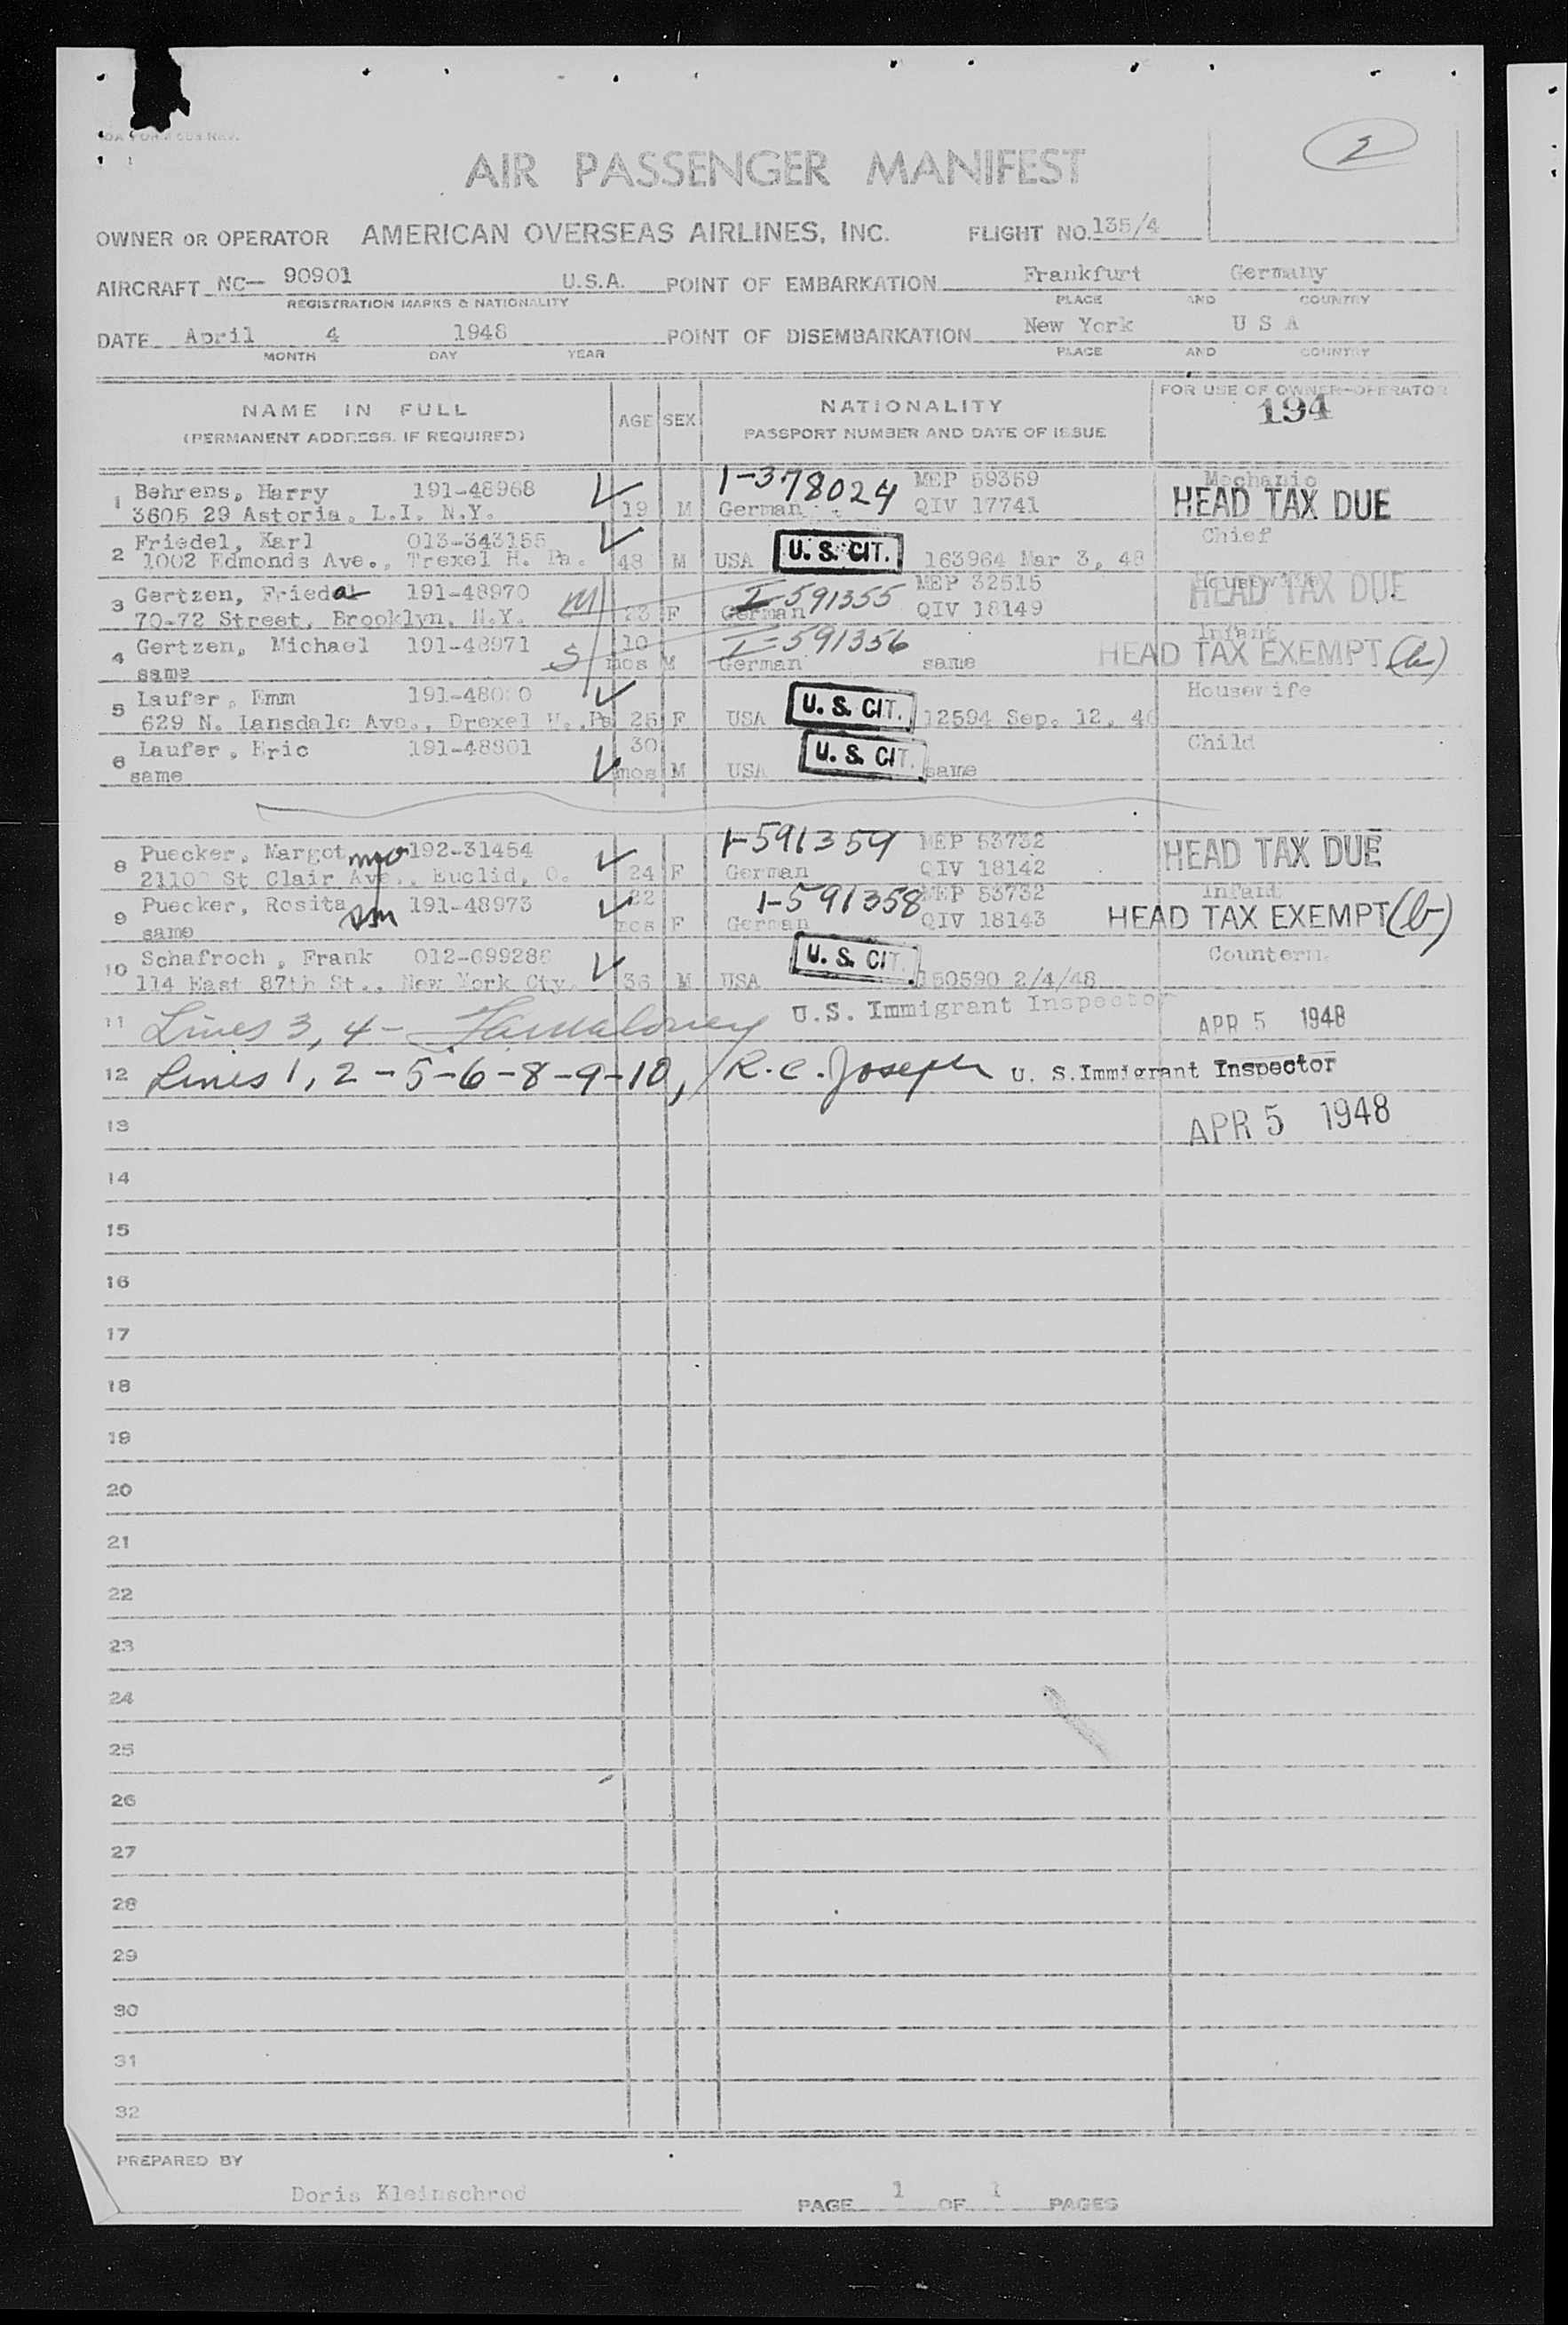 2
AIR PASSENGER MANIFEST
OWNER OR OPERATOR AMERICAN OVERSEAS AIRLINES, INC. FLIGHT NO. 135/4
AIRCRAFT NC— 90901 U.S.A. POINT OF EMBARKATION Frankfurt Germany
REGISTRATION MARKS & NATIONALITY PLACE AND COUNTRY
DATE April 4 1948 POINT OF DISEMBARKATION New York U S A
MONTH DAY YEAR PLACE AND COUNTRY
NAME IN FULL AGE SEX NATIONALITY FOR USE OF OWNER-OPERATOR
(PERMANENT ADDRESS, IF REQUIRED) PASSPORT NUMBER AND DATE OF ISSUE 194
1 Behrens, Harry 191-48968 1-378024 MEP 59359 Mechanic
3605 29 Astoria, L.I. N.Y. 19 M German QIV 17741 HEAD TAX DUE
2 Friedel, Karl 013-343155 Chief
1002 Edmonds Ave., Trexel H. Pa. 48 M USA U. S. CIT. 163964 Mar 3, 48
3 Gertzen, Frieda 191-48970 M I-591355 MEP 32515 Housewife HEAD TAX DUE
70-72 Street, Brooklyn, N.Y. 23 F German QIV 18149
4 Gertzen, Michael 191-48971 S 10 I-591356 Infant
same mos M German same HEAD TAX EXEMPT (b)
5 Laufer, Emm U. S. CIT. Housewife
629 N. Lansdale Ave., Drexel H., Pa 25 F USA 12594 Sep. 12, 46
6 Laufer, Eric 191-48801 30 U. S. CIT. Child
same mos M USA same
8 Puecker, Margot mo 192-31454 1-591359 MEP 53732 HEAD TAX DUE
St Clair Ave., Euclid, O. 24 F German QIV 18142
9 Puecker, Rosita 191-48973 22 1-591358 MEP 53732 Infant
same mos F German QIV 18143 HEAD TAX EXEMPT (b)
10 Schafroch, Frank U. S. CIT.
114 East 87th St., New York Cty. 36 M USA 150590 2/4/48
11 Lines 3, 4 - U.S. Immigrant Inspector APR 5 1948
12 Lines 1, 2-5-6-8-9-10, R. C. Joseph U. S. Immigrant Inspector
13 APR 5 1948
14
15
16
17
18
19
20
21
22
23
24
25
26
27
28
29
30
31
32
PREPARED BY
Doris Kleinschrod PAGE 1 OF 1 PAGES